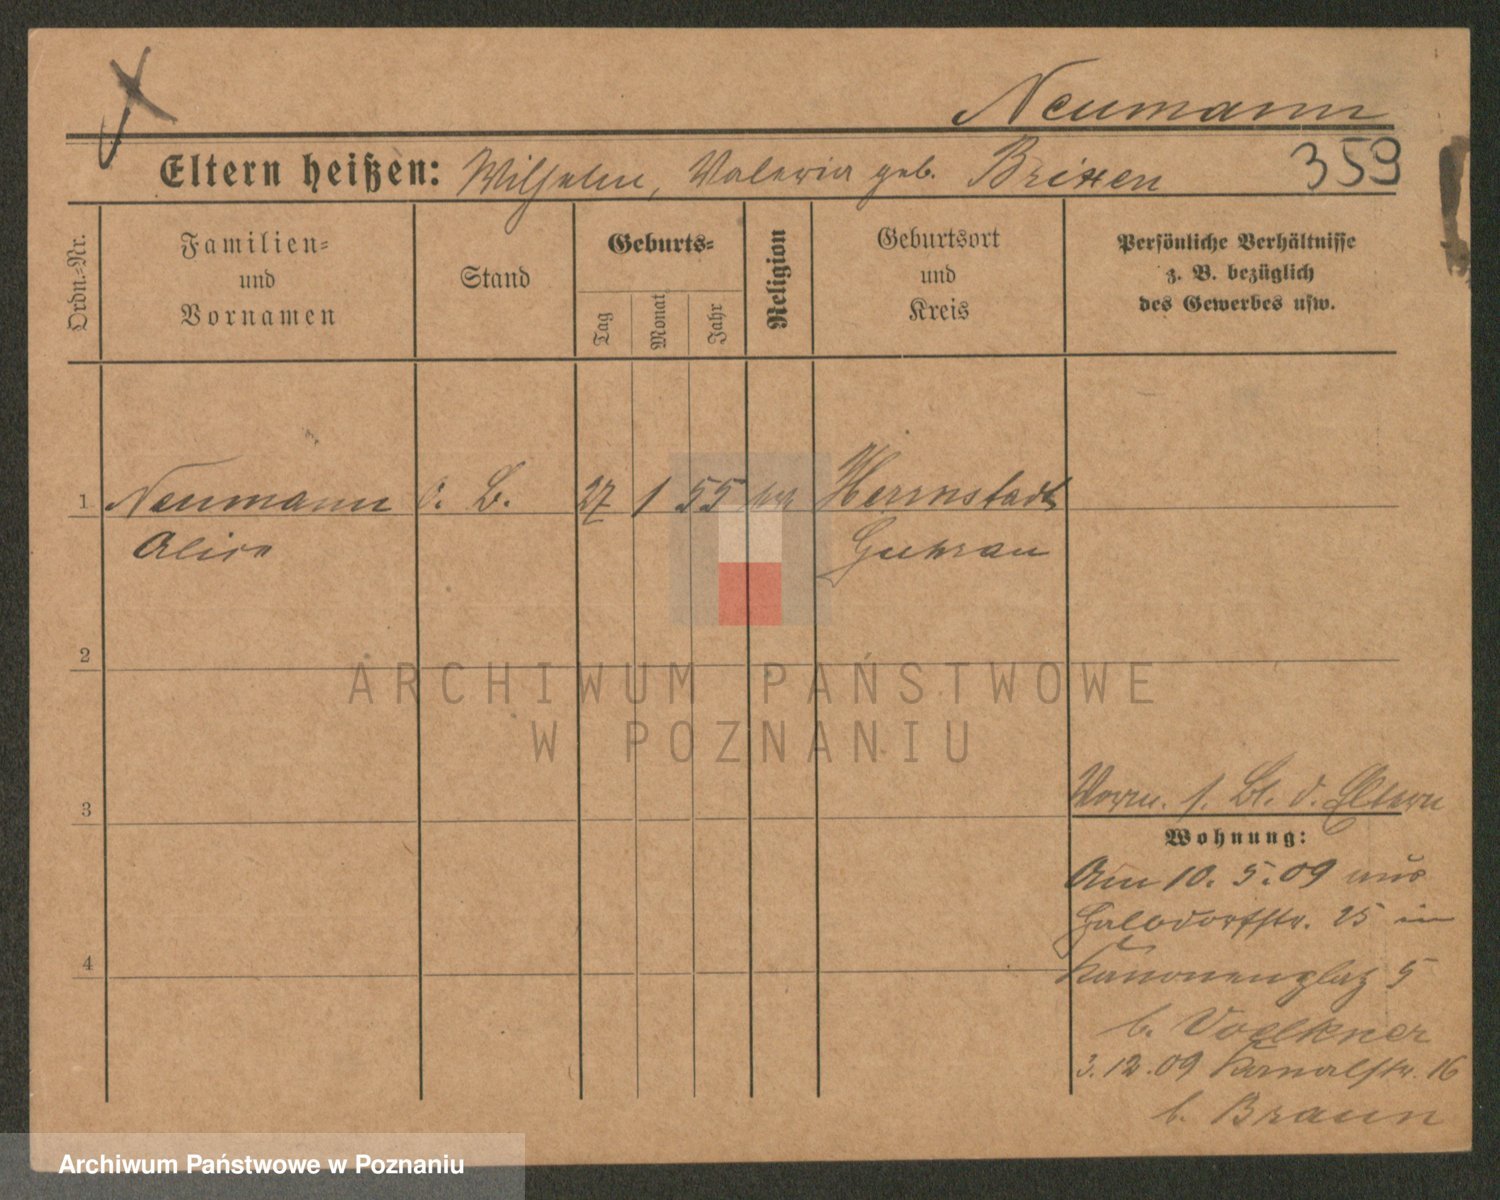 Neumann
Eltern heißen: Wilhelm, Valeria geb. Brixen 359
Ordn.-Nr.
Familien-
und
Vornamen
Stand
Geburts-
Tag
Monat
Jahr
Religion
Geburtsort
und
Kreis
Persönliche Verhältnisse
z. B. bezüglich
des Gewerbes usw.
1 Neumann o. B. 27 1 55 Herrnstadt
Alice Guhrau
2
3
4
Vorm. s. Bl. d. Eltern
Wohnung:
Am 10. 5. 09 aus
Halbdorfstr. 25 in
Kanonenplatz 5
b. Voelkner
3. 12. 09 Kanalstr. 16
b. Braun
ARCHIWUM PAŃSTWOWE
W POZNANIU
Archiwum Państwowe w Poznaniu